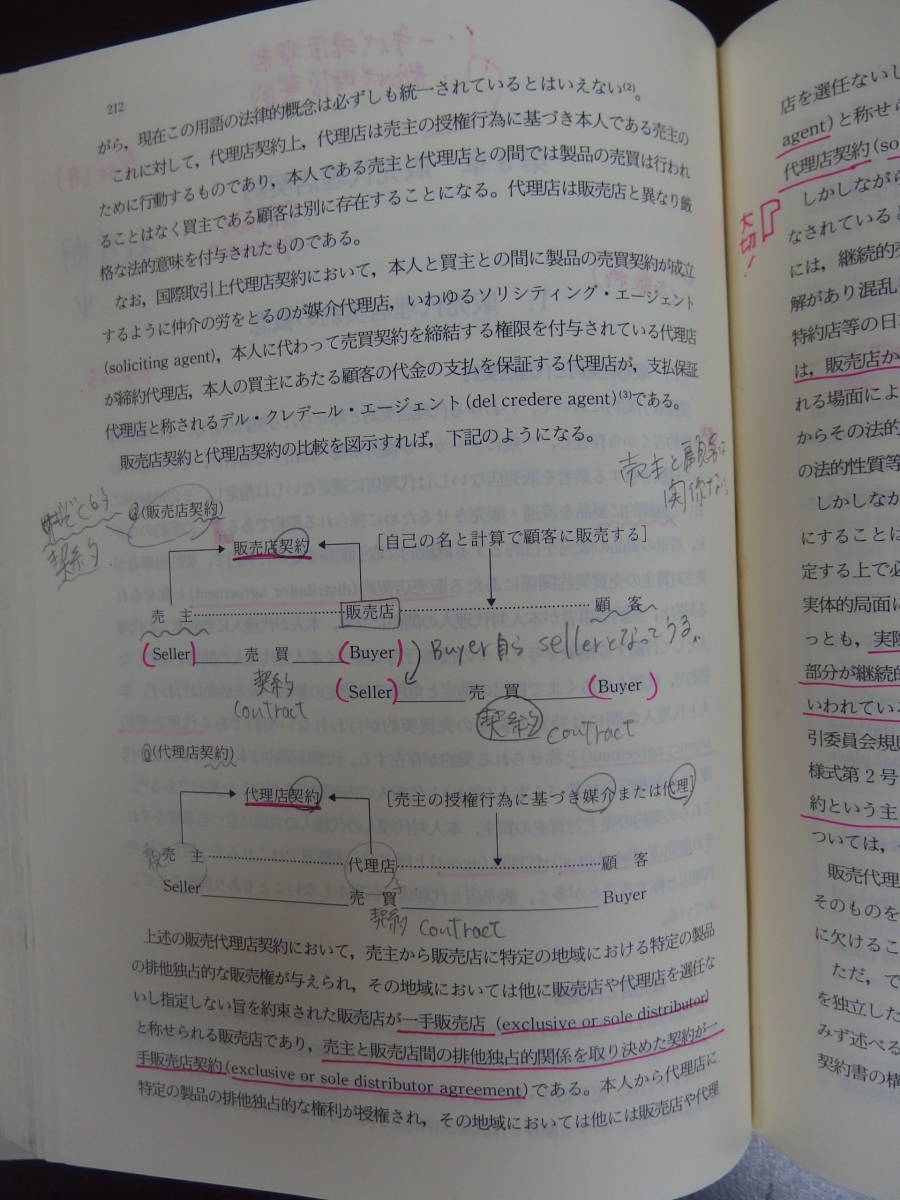 212
がら，現在この用語の法律的概念は必ずしも統一されているとはいえない(2)。
これに対して，代理店契約上，代理店は売主の授権行為に基づき本人である売主の
ために行動するものであり，本人である売主と代理店との間では製品の売買は行われ
ることはなく買主である顧客は別に存在することになる。代理店は販売店と異なり厳
格な法的意味を付与されたものである。
なお，国際取引上代理店契約において，本人と買主との間に製品の売買契約が成立
するように仲介の労をとるのが媒介代理店，いわゆるソリシティング・エージェント
(soliciting agent)，本人に代わって売買契約を締結する権限を付与されている代理店
が締約代理店，本人の買主にあたる顧客の代金の支払を保証する代理店が，支払保証
代理店と称されるデル・クレデール・エージェント(del credere agent)(3)である。
販売店契約と代理店契約の比較を図示すれば，下記のようになる。
売主と顧客は
関係ない
契約
(販売店契約)
販売店契約
[自己の名と計算で顧客に販売する]
売 主
販売店
顧 客
(Seller) 売 買 (Buyer)
Buyer自ら sellerとなってうる。
契約
contract
(Seller) 売 買 (Buyer)
契約 contract
(代理店契約)
代理店契約
[売主の授権行為に基づき媒介または代理]
売 主
代理店
顧 客
Seller 売 買 Buyer
契約 contract
上述の販売代理店契約において，売主から販売店に特定の地域における特定の製品
の排他独占的な販売権が与えられ，その地域においては他に販売店や代理店を選任な
いし指定しない旨を約束された販売店が一手販売店 (exclusive or sole distributor)
と称せられる販売店であり，売主と販売店間の排他独占的関係を取り決めた契約が一
手販売店契約(exclusive or sole distributor agreement)である。本人から代理店に
特定の製品の排他独占的な権利が授権され，その地域においては他には販売店や代理
店を選任ないし
agent)と称せら
代理店契約(so
大切！
しかしながら
なされていると
には，継続的売
解があり混乱
特約店等の日
は，販売店か
れる場面によ
からその法的
の法的性質等
しかしなが
にすることは
定する上で必
実体的局面に
っとも，実際
部分が継続的
いわれている
引委員会規則
様式第2号
約という主
ついては，
販売代理
そのものを
に欠けるこ
ただ，で
を独立した
みず述べる
契約書の構